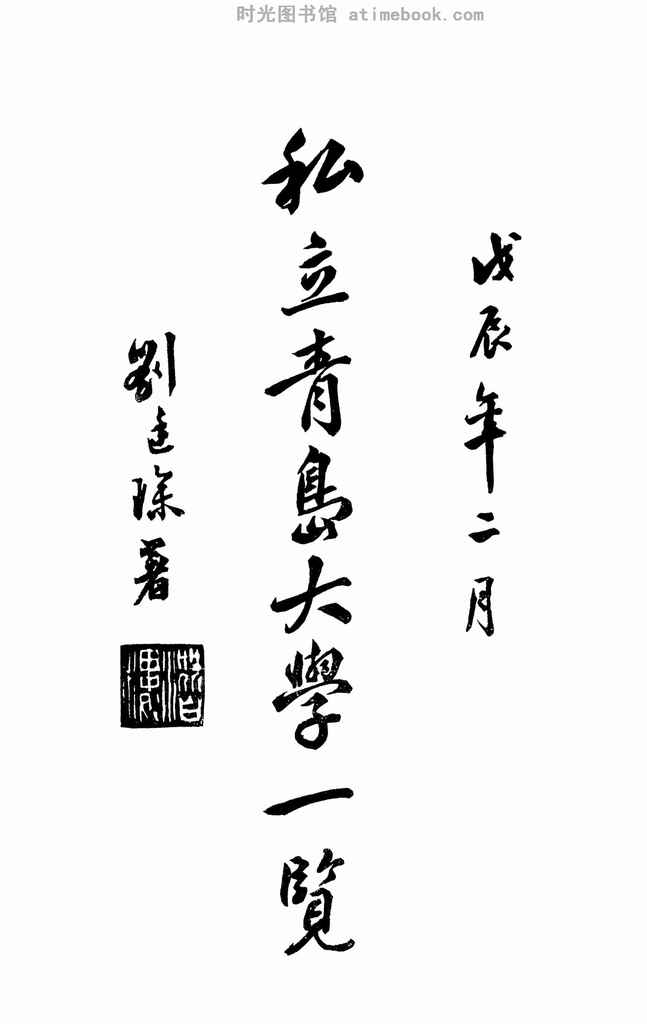 时光图书馆 atimebook.com
戊辰年二月
私立青島大學一覽
劉廷琛署
潛樓